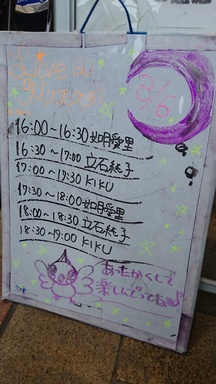 Live in
3/6
16:00~16:30 如月愛里
16:30~17:00 立石純子
17:00~17:30 KIKU
17:30~18:00 如月愛里
18:00~18:30 立石純子
18:30~19:00 KIKU
あったかくして
楽しんでってね